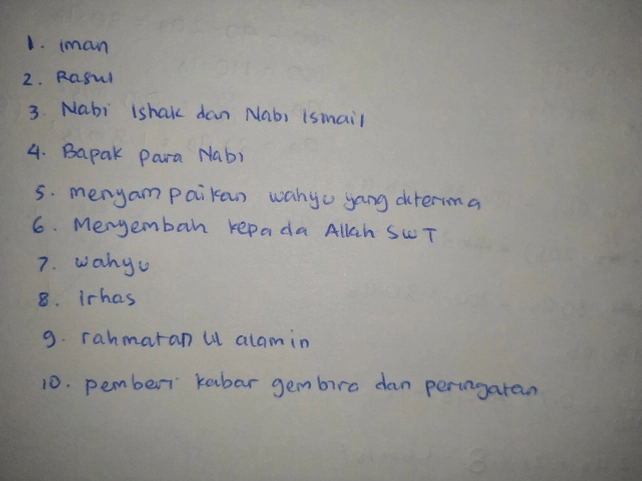 1. iman
2. Rasul
3. Nabi Ishak dan Nabi Ismail
4. Bapak para Nabi
5. menyampaikan wahyu yang diterima
6. Menyembah kepada Allah SWT
7. wahyu
8. irhas
9. rahmatan lil alamin
10. pemberi kabar gembira dan peringatan